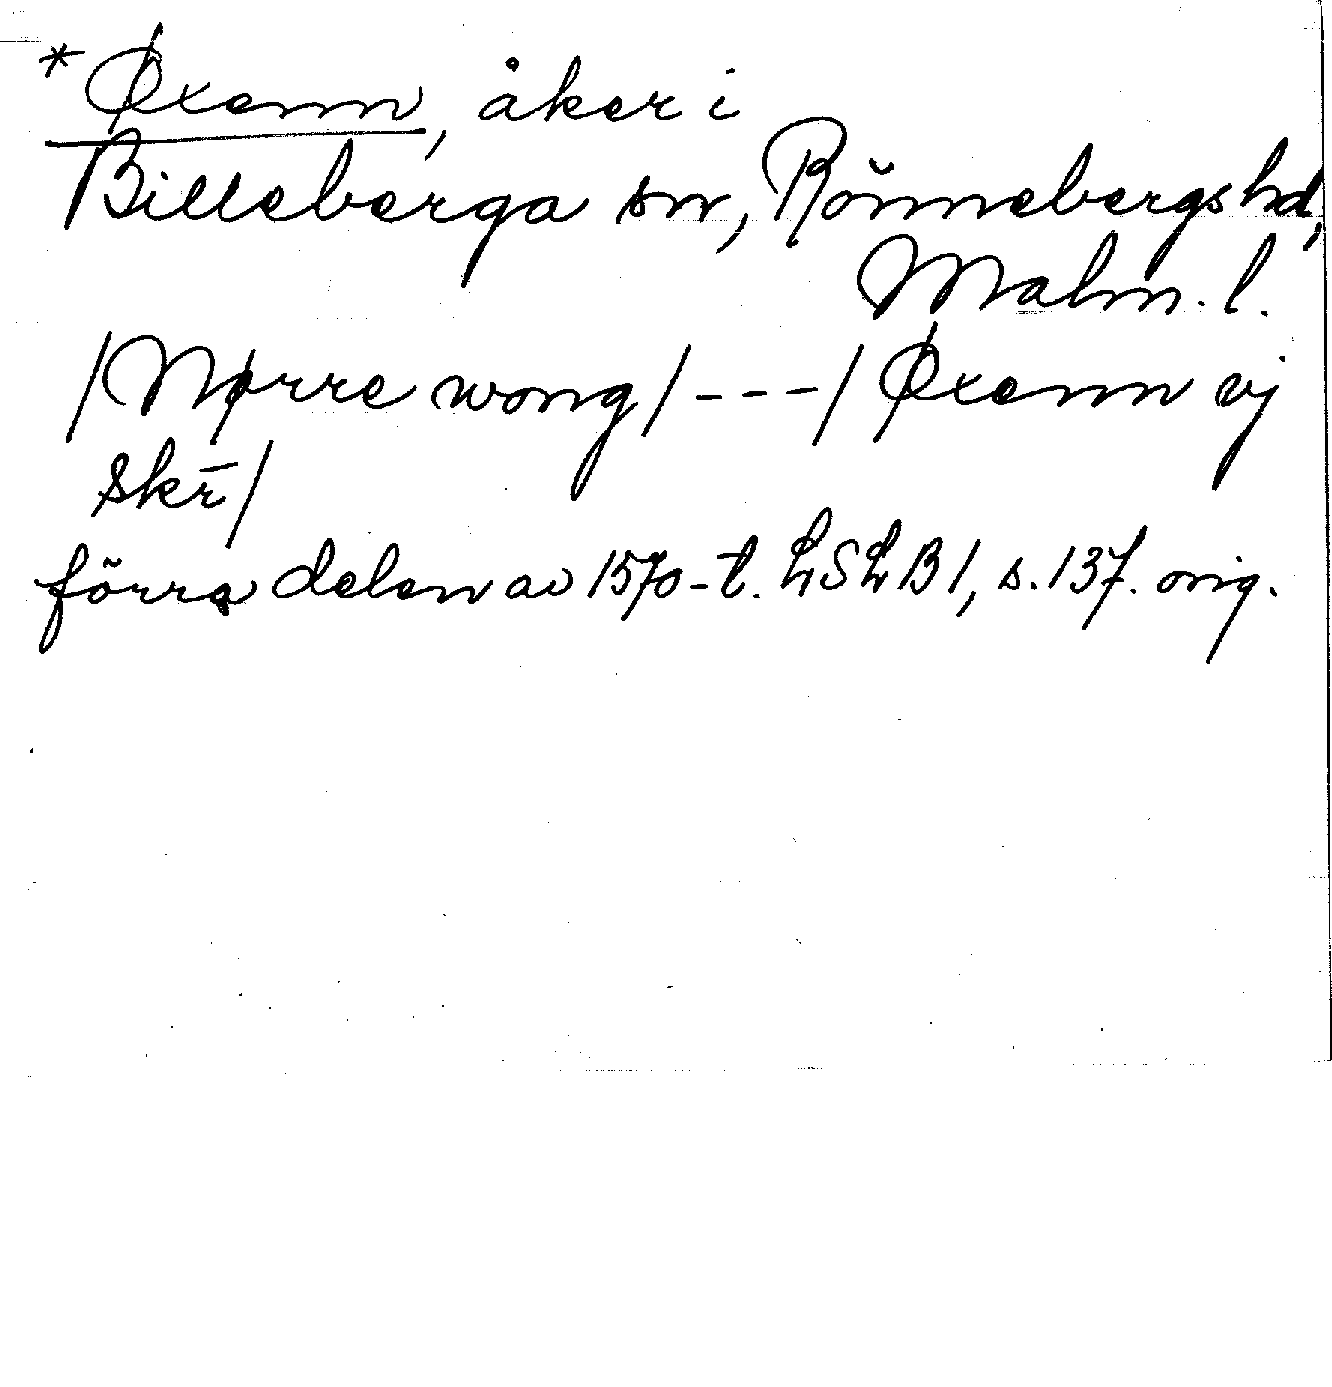 *Øxenn, åker i
Billeberga sn, Rönnebergs hd,
Malm. l.
/Nørre wong/ --- / Øxenn vj
skr̄/
förra delen av 1570-t. LSLB 1, s. 137. orig.